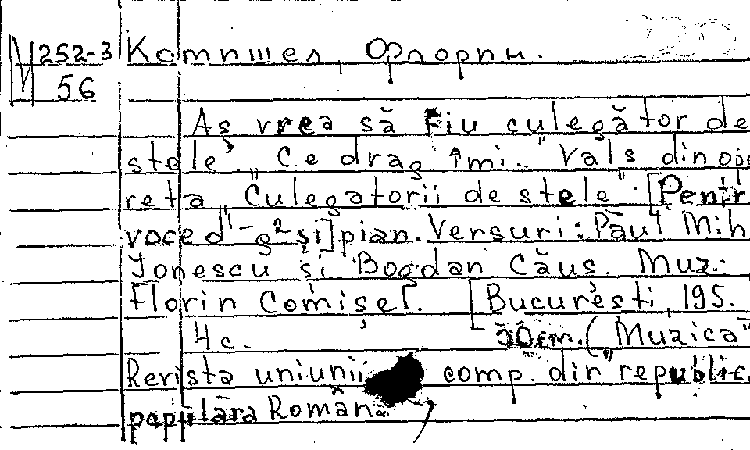 M 252-3 Комишел, Флорин.
56
Aș vrea să fiu culegător de
stele", „Ce drag îmi.." Vals din ope
reta „Culegatorii de stele". [Pentr
voce d¹-g² și] pian. Versuri: Paul Mih
Jonescu și Bogdan Căuș. Muz:
Florin Comișel. [București, 195.
4 c. 30cm. („Muzica"
Revista uniunii comp. din republic
populara Română)